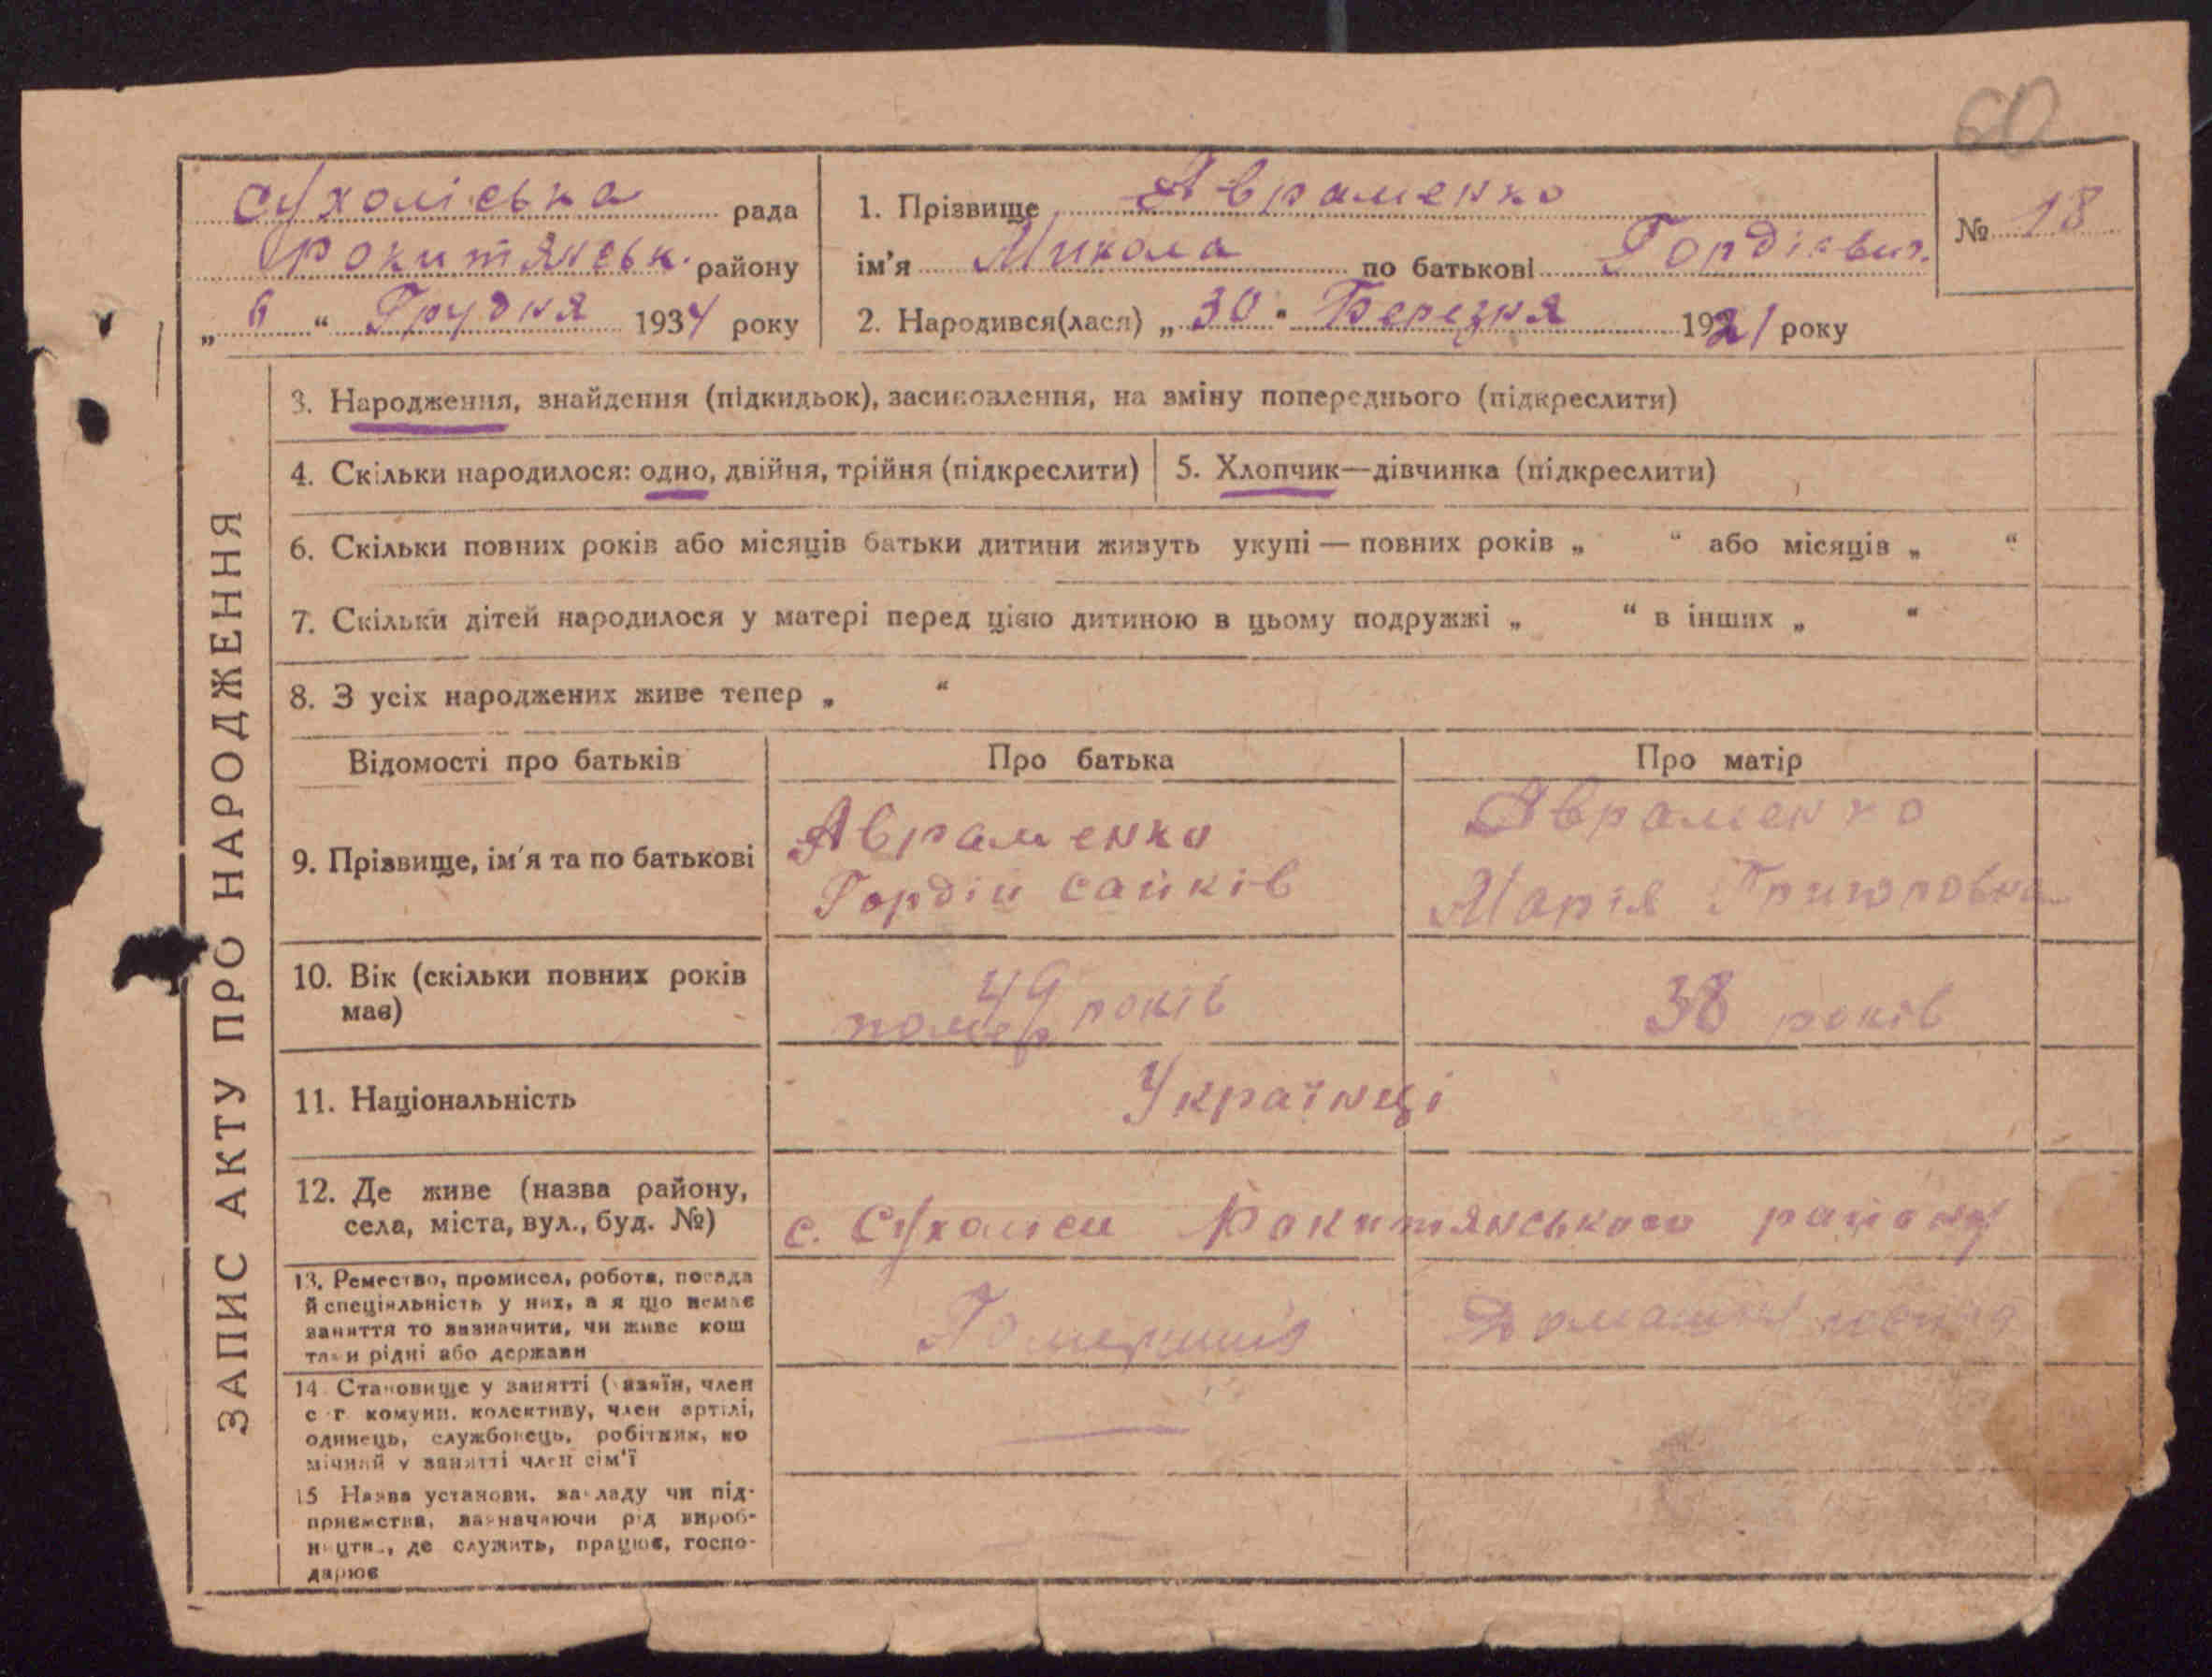 60
Сухоліська рада
Рокитянськ. району
„ 6 “ Грудня 1934 року
1. Прізвище Авраменко
ім'я Микола по батькові Гордієвич.
2. Народився(лася) „ 30 “ Березня 1921 року
№ 18
ЗАПИС АКТУ ПРО НАРОДЖЕННЯ
3. Народження, знайдення (підкидьок), засиновлення, на зміну попереднього (підкреслити)
4. Скільки народилося: одно, двійня, трійня (підкреслити)
5. Хлопчик—дівчинка (підкреслити)
6. Скільки повних років або місяців батьки дитини живуть укупі — повних років „ “ або місяців „ “
7. Скільки дітей народилося у матері перед цією дитиною в цьому подружжі „ “ в інших „ “
8. З усіх народжених живе тепер „ “
Відомості про батьків
Про батька
Про матір
9. Прізвище, ім'я та по батькові
Авраменко
Гордій
Авраменко
Марія Григоровна
10. Вік (скільки повних років
має)
49 років
помер
38 років
11. Національність
Українці
12. Де живе (назва району,
села, міста, вул., буд. №)
с. Сухоліси Рокитянського району
13. Ремество, промисел, робота, посада
й спеціяльність у них, а я що немає
заняття то зазначити, чи живе кош
тами рідні або держави
Домашня
14 Становище у занятті (хазяїн, член
с г. комуни, колективу, член артілі,
одинець, службовець, робітник, по
мічний у занятті член сім'ї
15 Назва установи, закладу чи під-
приємства, зазначаючи рід вироб-
ництв., де служить, працює, госпо-
дарює